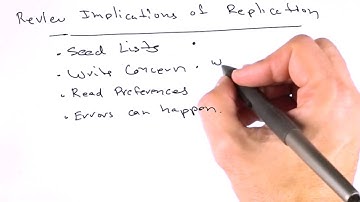 Review Implications of Replication
• Seed Lists •
• Write Concern • w
• Read Preferences
• Errors can happen.